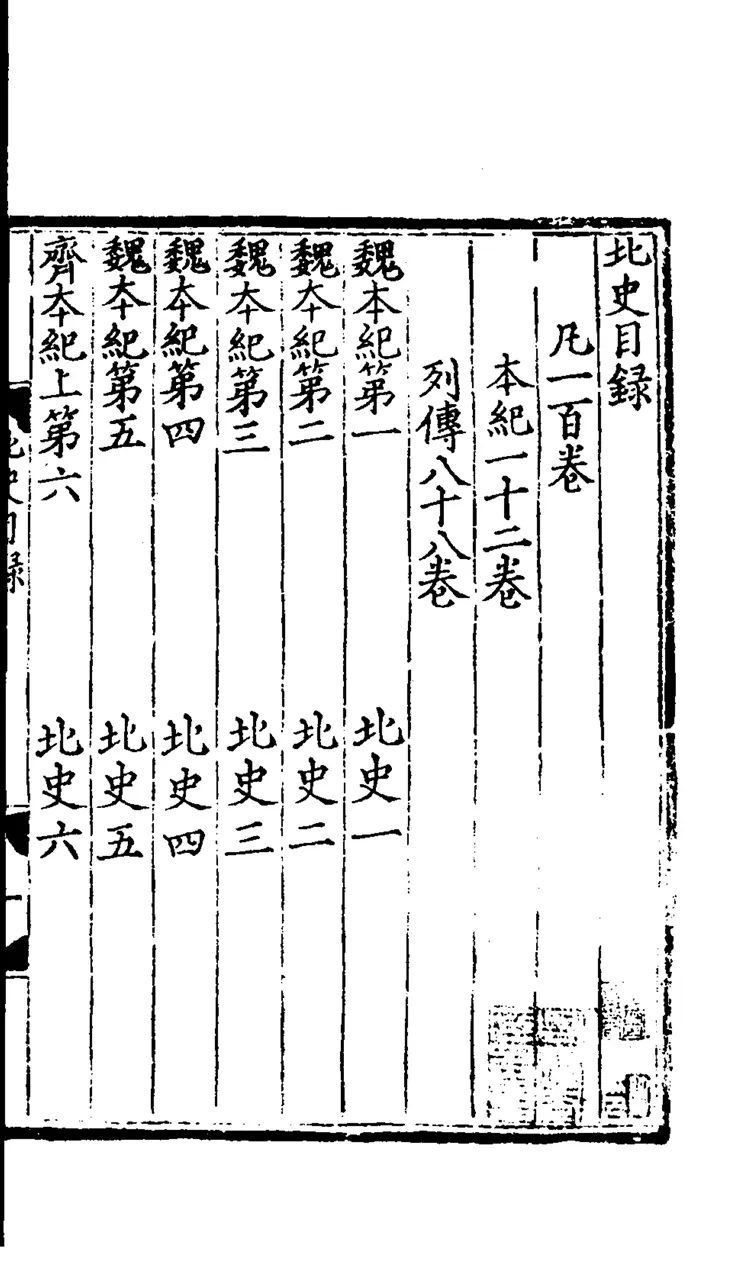 北史目録
凡一百卷
本紀一十二卷
列傳八十八卷
魏本紀第一 北史一
魏本紀第二 北史二
魏本紀第三 北史三
魏本紀第四 北史四
魏本紀第五 北史五
齊本紀上第六 北史六
北史目録
一